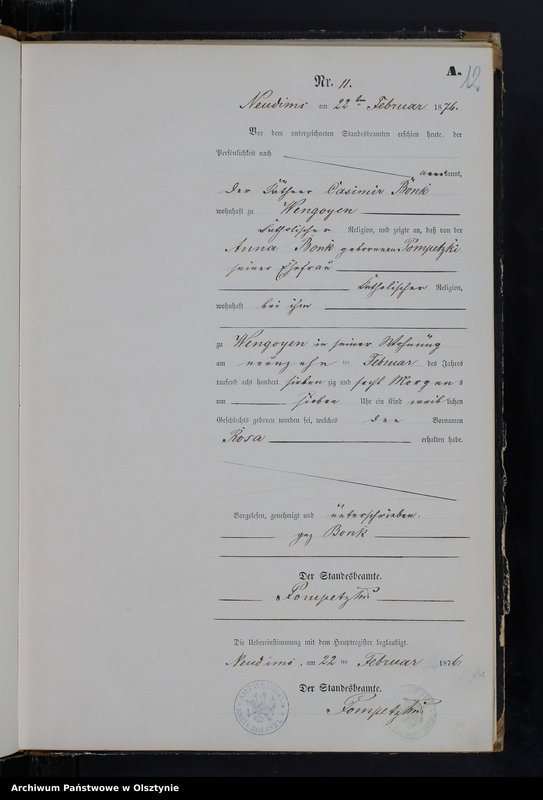 A.
12
Nr. 11.
Neudims am 22 ten Februar 1876.
Vor dem unterzeichneten Standesbeamten erschien heute, der
Persönlichkeit nach
kannt,
der Käthner Casimir Bonk
wohnhaft zu Wengoyen
katholischer Religion, und zeigte an, daß von der
Anna Bonk geborenen Pompetzki
seiner Ehefrau
katholischer Religion,
wohnhaft bei ihm
zu Wengoyen in seiner Wohnung
am neunzehn ten Februar des Jahres
tausend acht hundert sieben zig und sechs Morgens
um sieben Uhr ein Kind weib lichen
Geschlechts geboren worden sei, welches den Vornamen
Rosa erhalten habe.
Vorgelesen, genehmigt und unterschrieben.
gez Bonk
Der Standesbeamte.
Pompetzki
Die Uebereinstimmung mit dem Hauptregister beglaubigt.
Neudims, am 22 ten Februar 1876
Der Standesbeamte.
Pompetzki
Archiwum Państwowe w Olsztynie